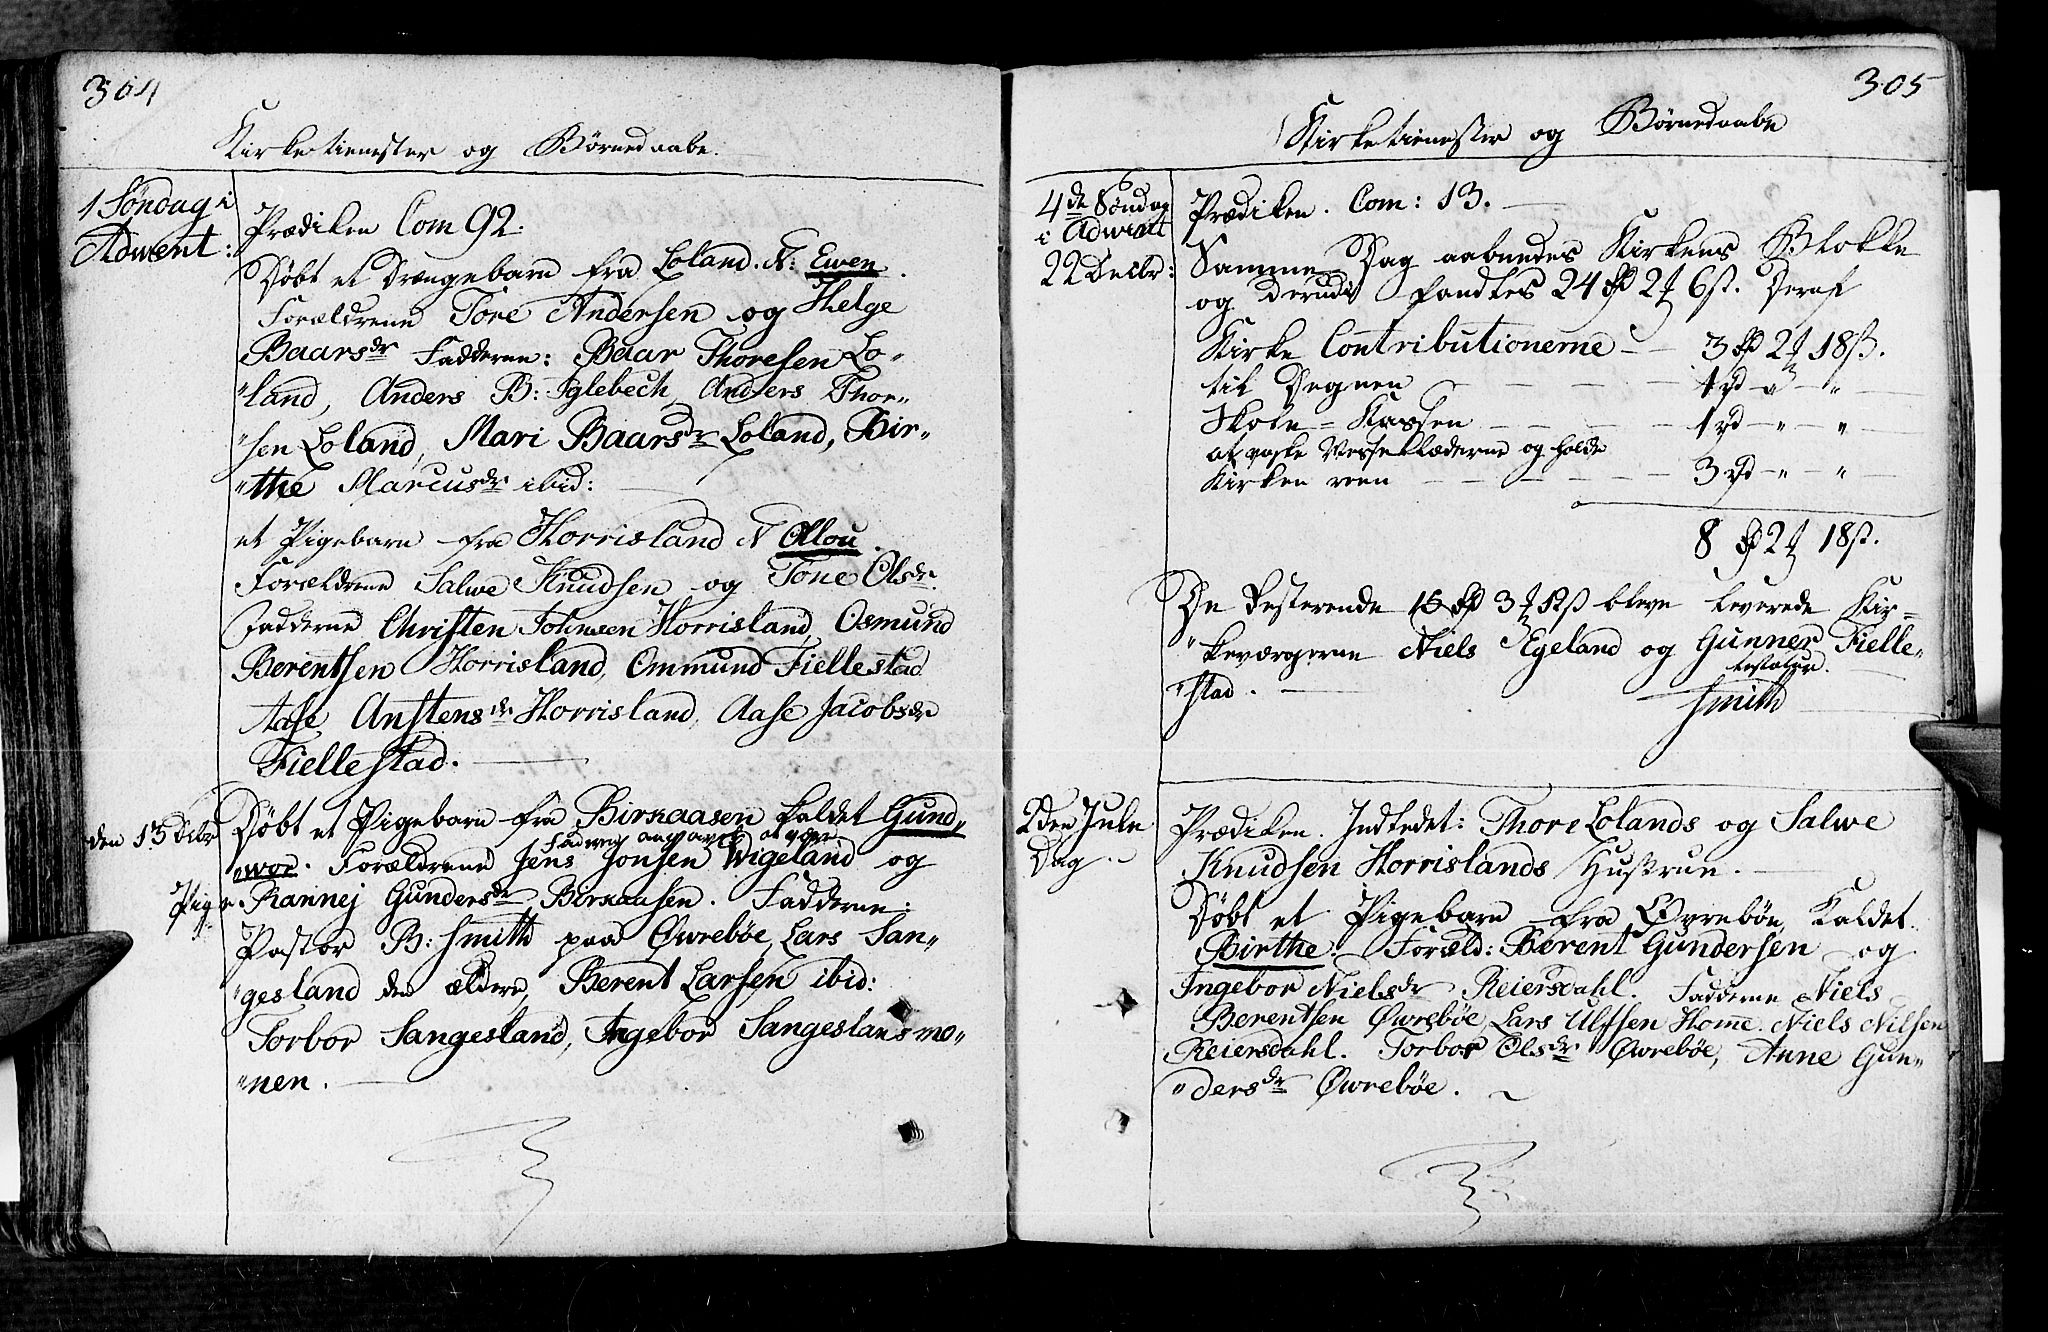 304
Kirketienester og Børnedaabe.
1 Søndag i
Adwent:
Prædiken Com 92.
Døbt et Drængebarn fra Loland. N: Ewen.
Forældrene Tore Andersen og Helge
Baarsdr Fadderne: Baar Thoresen Lo-
"land, Anders B: Iglebech, Anders Thor-
"sen Loland, Mari Baarsdr Loland, Bir-
"the Marcusdr ibid:
et Pigebarn fra Horrisland N Ollou.
Forældrene Salwe Knudsen og Tone Olsdr.
Fadderne Christen Johnsen Horrisland, Osmund
Berentsen Horrisland, Ommund Fiellestad
Aase Anstensdr Horrisland, Aase Jacobsdr
Fiellestad.
den 15 Decbr
Døbt et Pigebarn fra Birkaasen kaldet Gund-
"wor. Forældrene Jens Jonsen Wigeland og
Pige
Rannej Gundersdr Birkaasen. Fadderne:
Pastor B: Smith paa Øwrebøe, Lars San-
"gesland den ældere, Berent Larsen ibid:
Torbor Sangesland, Ingebor Sangeslansmo-
"nen.
305
Kirketienester og Børnedaabe
4de Søndag
i Adwent
22 Decbr:
Prædiken. Com: 13.
Samme Dag aabnedes Kirkens Blokke
og derudi fandtes 24 rd 2 # 6 ß. Deraf
Kirke Contributionerne - 3 rd 2 # 18 ß.
til Degnen - - - 1 rd - " - "
Skole-Kassen - - - 1 rd - " - "
at vaske Messeklæderne og holde
Kirken reen - - - 3 rd - " - "
8 rd 2 # 18 ß.
De Resterende rd 3 # ß bleve leverede Kir-
"keværgerne Niels Egeland og Gunner Fielle-
"stad.
testatur.
Smith
2den Jule
Dag.
Prædiken. Indledet: Thore Lolands og Salwe
Knudsen Horrislands Hustruer.
Døbt et Pigebarn fra Øvrebøe, Kaldet
Birthe. Foræld: Berent Gundersen og
Ingebor Nielsdr Reiersdahl. Fadderne Niels
Berentsen Øwrebøe, Lars Ulfsen Homme. Niels Nilsen
Reiersdahl. Torbor Olsdr Øwrebøe, Anne Gun-
"dersdr Øwrebøe.